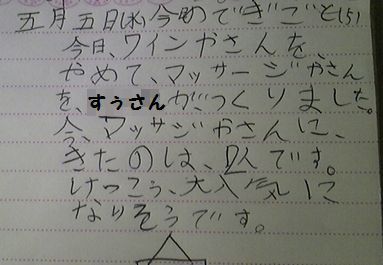 五月五日(水)今日のできごと(5)
今日、ワインやさんを、
やめて、マッサージやさん
を、すぅさんがつくりました。
今、マッサジやさんに、
きたのは、2人です。
けっこう、大人気に
なりそうです。